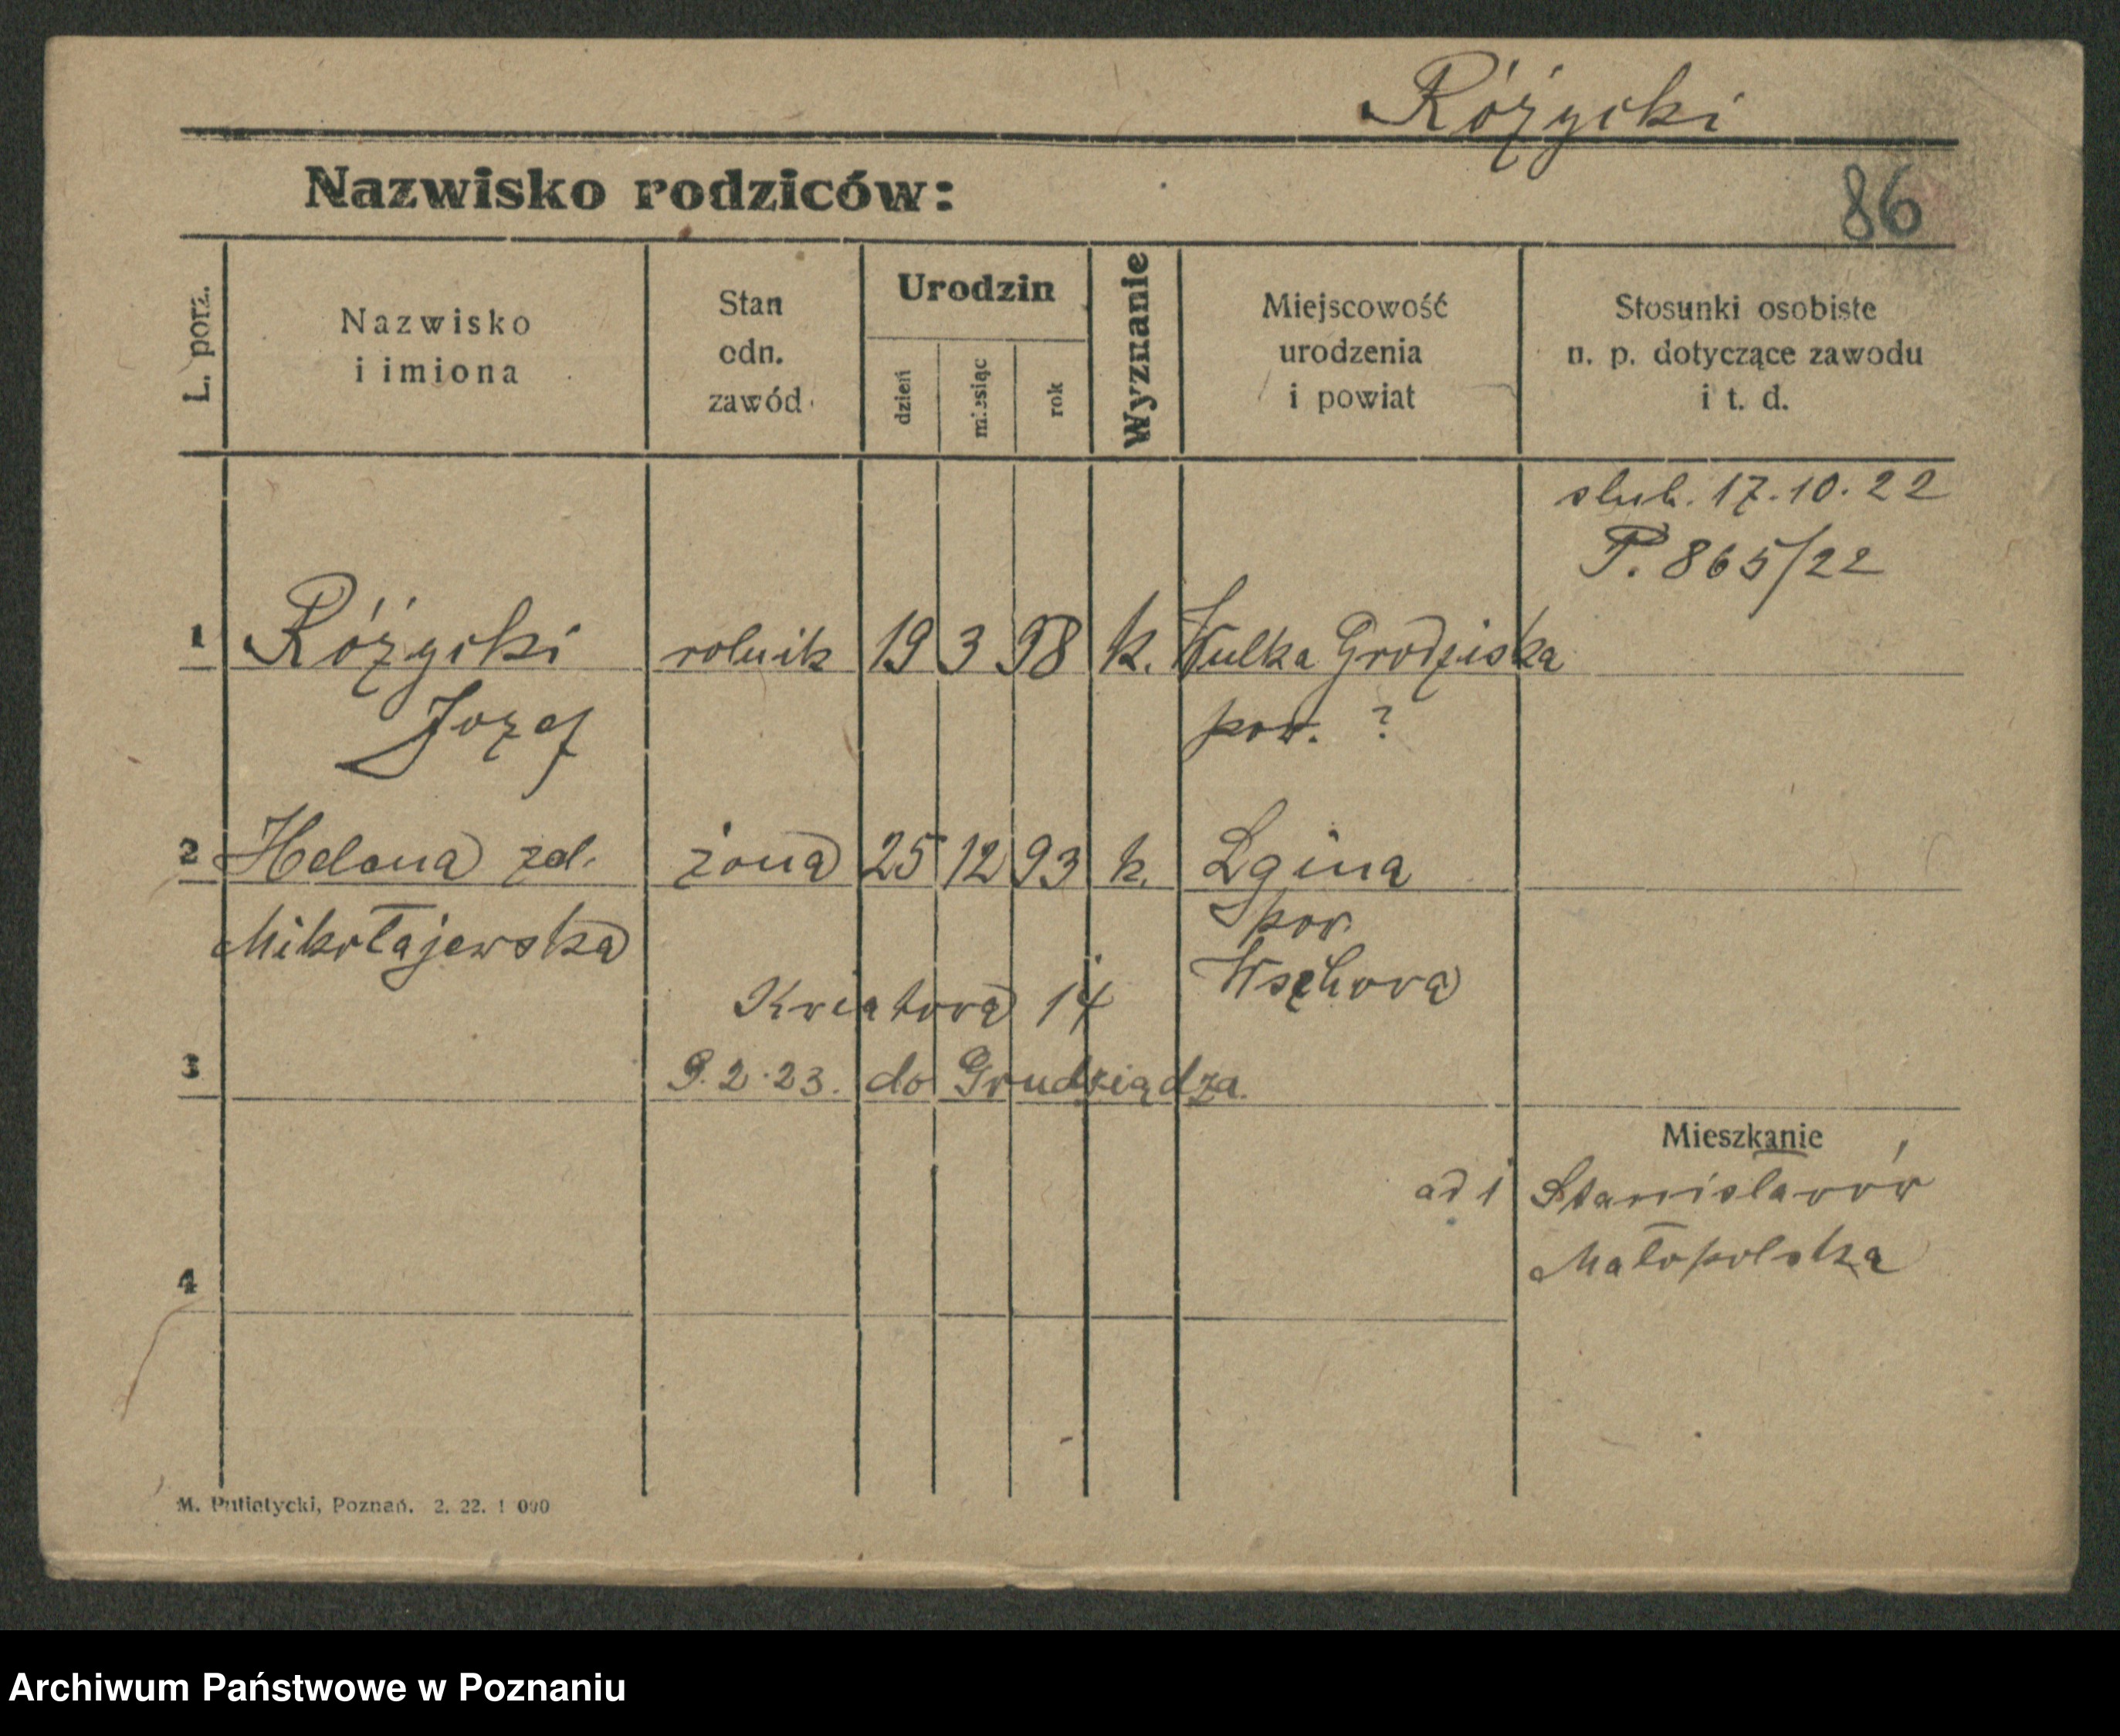 Różycki
Nazwisko rodziców:
86
L. porz.
Nazwisko
i imiona
Stan
odn.
zawód
Urodzin
dzień
miesiąc
rok
Wyznanie
Miejscowość
urodzenia
i powiat
Stosunki osobiste
n. p. dotyczące zawodu
i t. d.
slub. 17.10.22
P. 865/22
1 Różycki rolnik 19 3 98 k. Wulka Grodziska
Jozef pow. ?
2 Helena zd. żona 25 12 93 k. Lgina
Mikołajewska pow.
Wschova
Kwiatowa 14
3 9.2.23. do Grudziądza.
Mieszkanie
ad 1 Stanisławów
Małopolska
4
M. Putiatycki, Poznań. 2. 22. 1 000
Archiwum Państwowe w Poznaniu